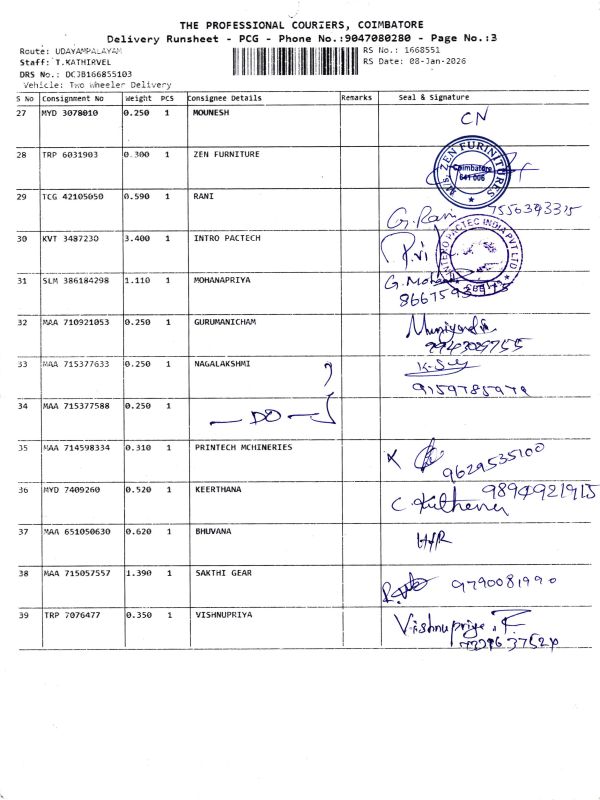 THE PROFESSIONAL COURIERS, COIMBATORE
Delivery Runsheet - PCG - Phone No.:9047080280 - Page No.:3
Route: UDAYAMPALAYAM
RS No.: 1668551
Staff: T.KATHIRVEL
RS Date: 08-Jan-2026
DRS No.: DCJB166855103
Vehicle: Two Wheeler Delivery
S No Consignment No Weight PCS Consignee Details Remarks Seal & Signature
27 MYD 3078010 0.250 1 MOUNESH CN
28 TRP 6031903 0.300 1 ZEN FURNITURE
M/s. ZEN FURINITURES
Coimbatore
641 006
29 TCG 42105050 0.590 1 RANI
G. Rani
30 KVT 3487230 3.400 1 INTRO PACTECH
INTERO PACTEC INDIA PVT LTD
31 SLM 386184298 1.110 1 MOHANAPRIYA
32 MAA 710921053 0.250 1 GURUMANICHAM
33 MAA 715377633 0.250 1 NAGALAKSHMI
34 MAA 715377588 0.250 1
— DO —
35 MAA 714598334 0.310 1 PRINTECH MCHINERIES
9629535100
36 MYD 7409260 0.520 1 KEERTHANA
9894921915
37 MAA 651050630 0.620 1 BHUVANA
38 MAA 715057557 1.390 1 SAKTHI GEAR
9790081990
39 TRP 7076477 0.350 1 VISHNUPRIYA
Vishnupriya